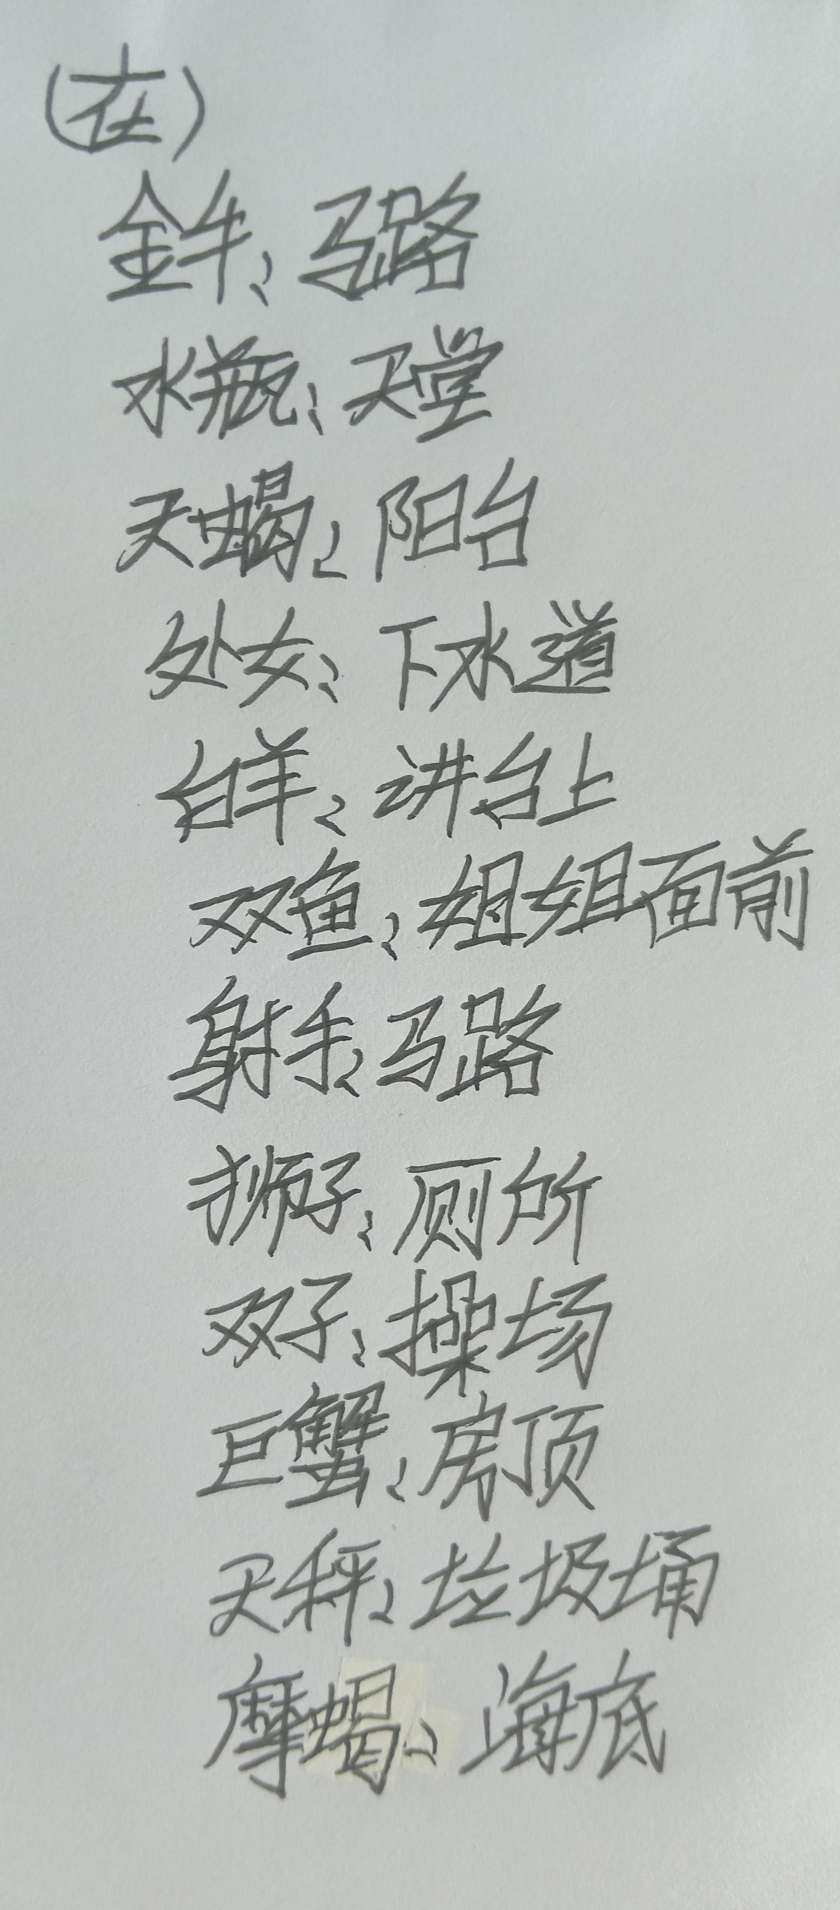 (在)
金牛：马路
水瓶：天堂
天蝎：阳台
处女：下水道
白羊：讲台上
双鱼：姐姐面前
射手：马路
狮子：厕所
双子：操场
巨蟹：房顶
天秤：垃圾桶
摩蝎：海底